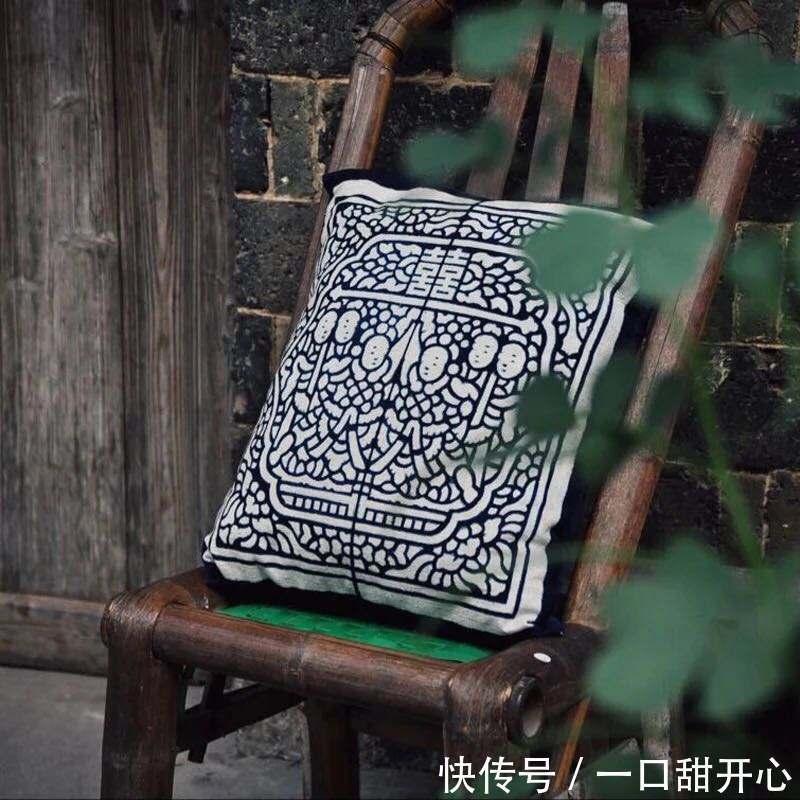 囍
快传号 / 一口甜开心